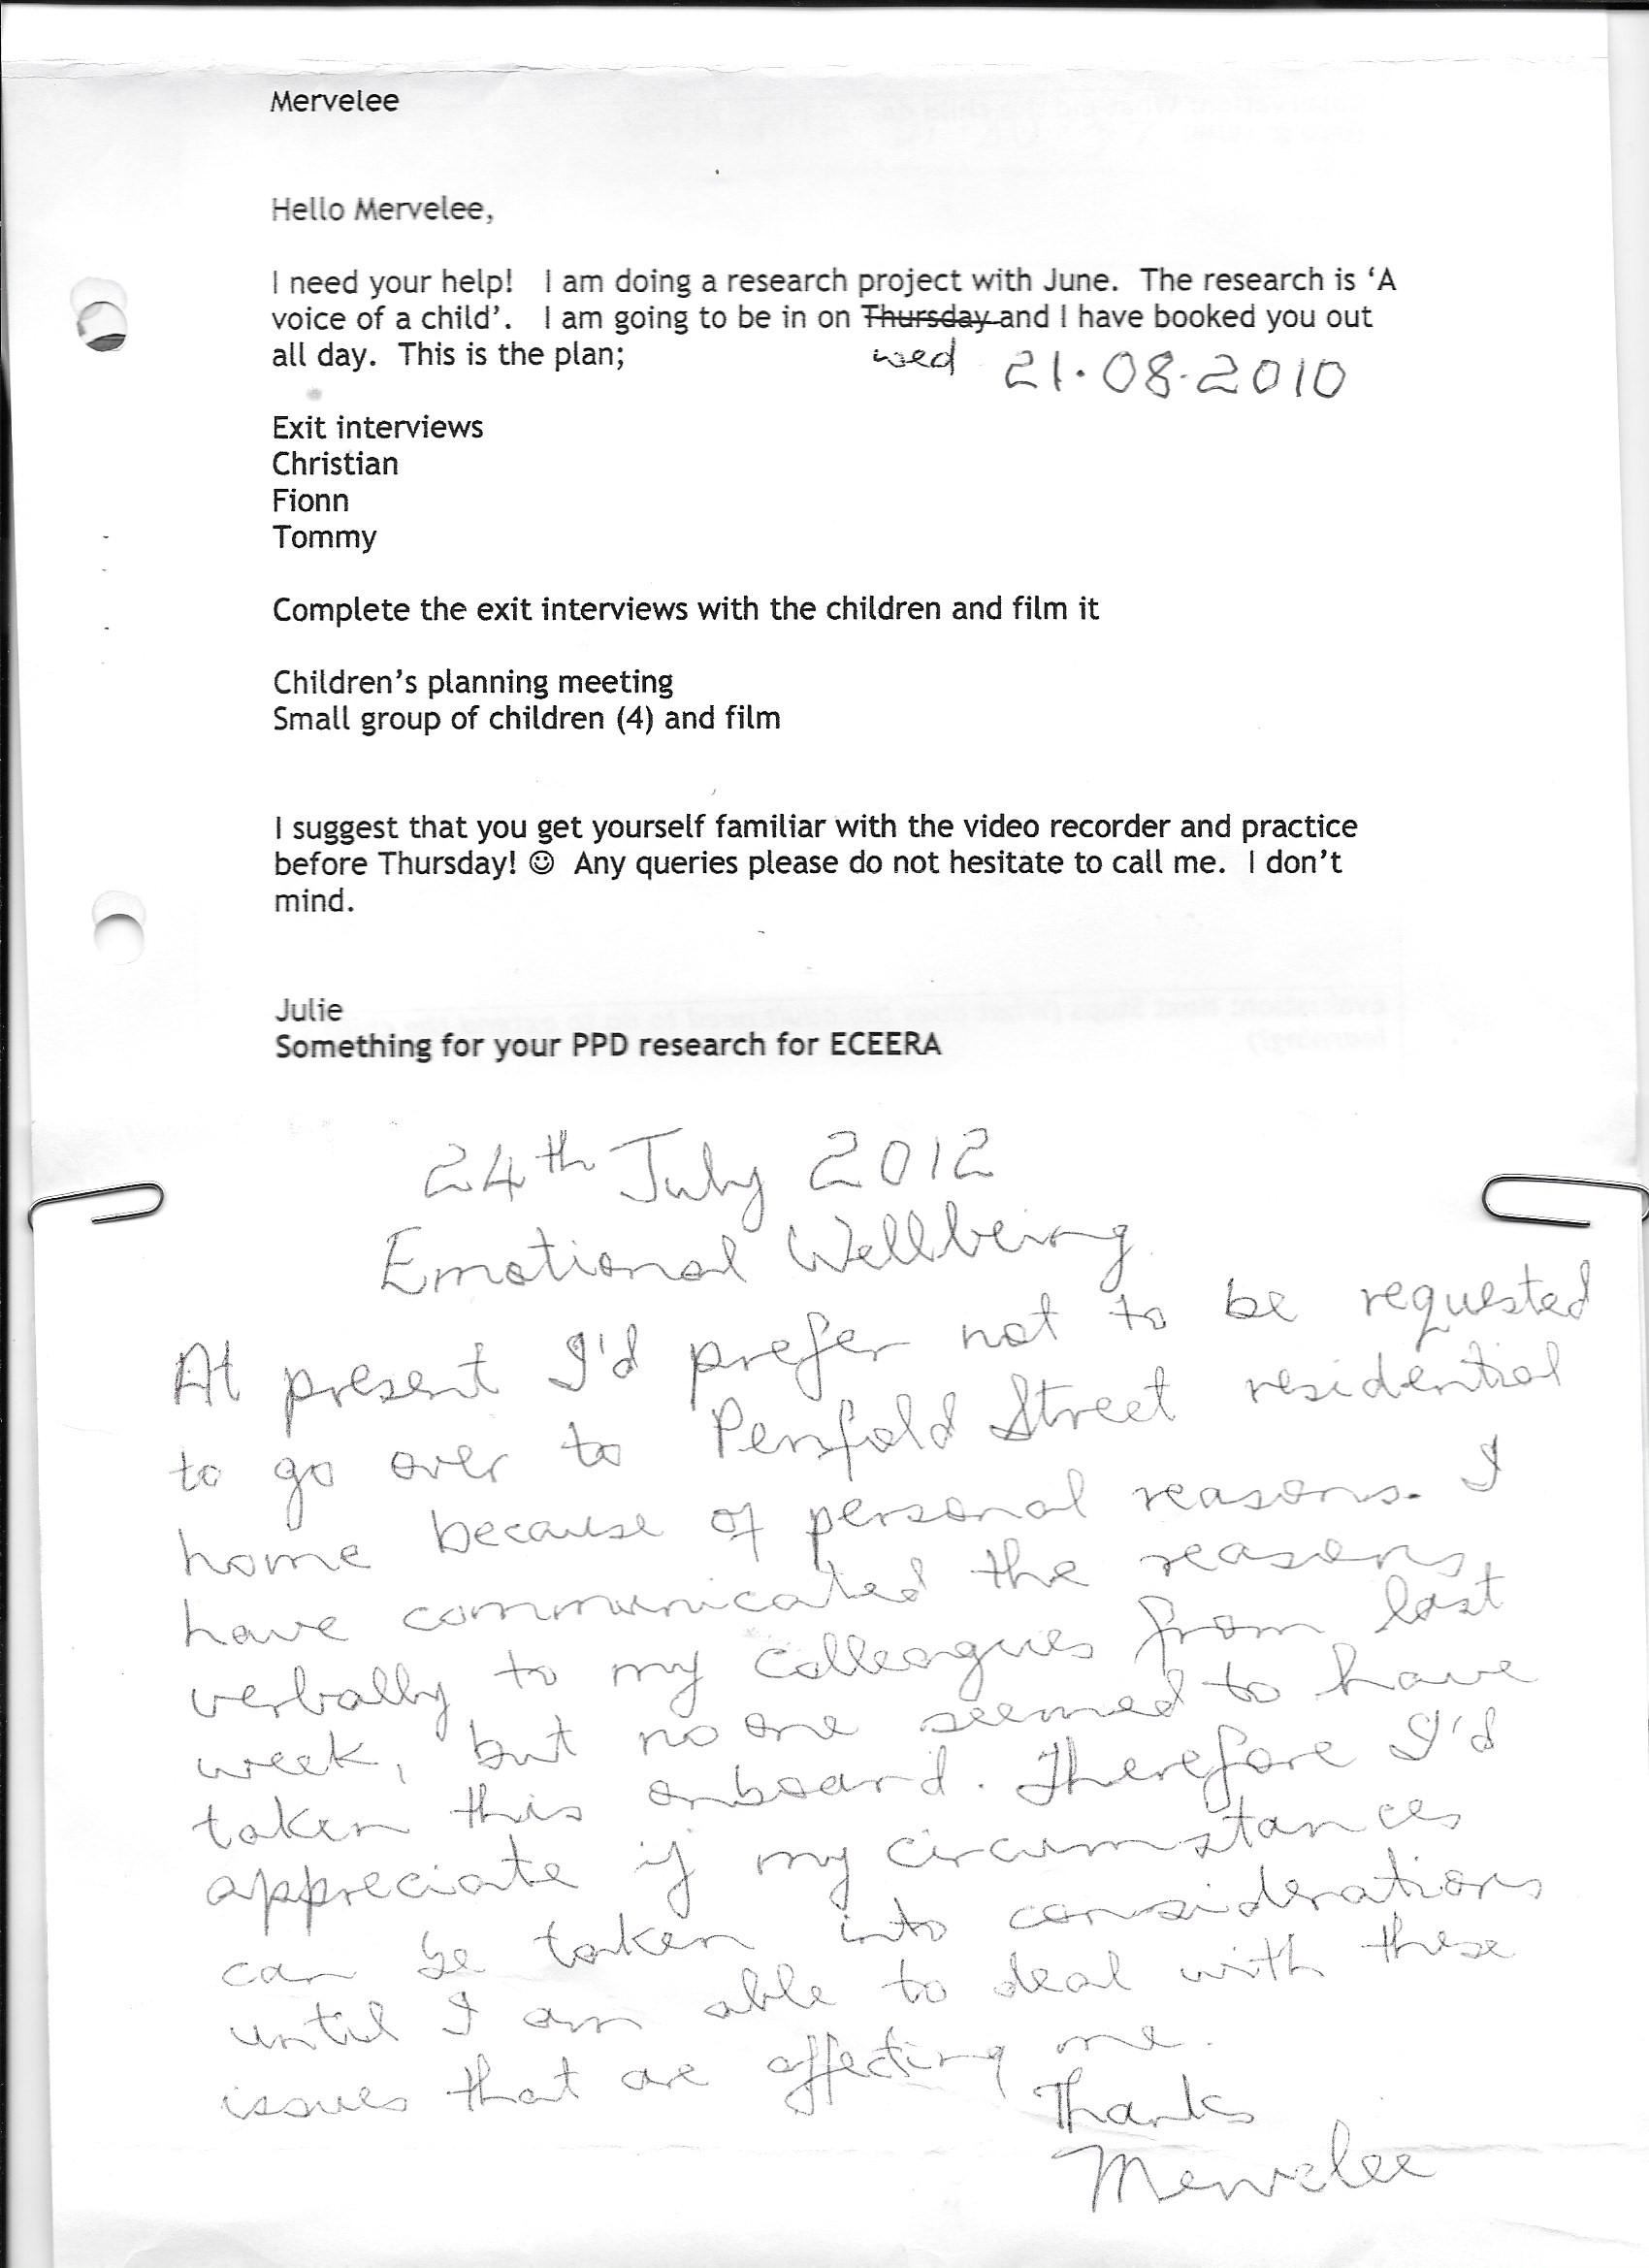 Mervelee
Hello Mervelee,
I need your help! I am doing a research project with June. The research is ‘A
voice of a child’. I am going to be in on Thursday and I have booked you out
all day. This is the plan;
wed 21.08.2010
Exit interviews
Christian
Fionn
Tommy
Complete the exit interviews with the children and film it
Children’s planning meeting
Small group of children (4) and film
I suggest that you get yourself familiar with the video recorder and practice
before Thursday! ☺ Any queries please do not hesitate to call me. I don’t
mind.
Julie
Something for your PPD research for ECEERA
24th July 2012
Emotional Wellbeing
At present I'd prefer not to be requested
to go over to Penfold Street residential
home because of personal reasons. I
have communicated the reasons
verbally to my colleagues from last
week, but no one seemed to have
taken this onboard. Therefore I'd
appreciate if my circumstances
can be taken into considerations
until I am able to deal with these
issues that are affecting me.
Thanks
Mervelee